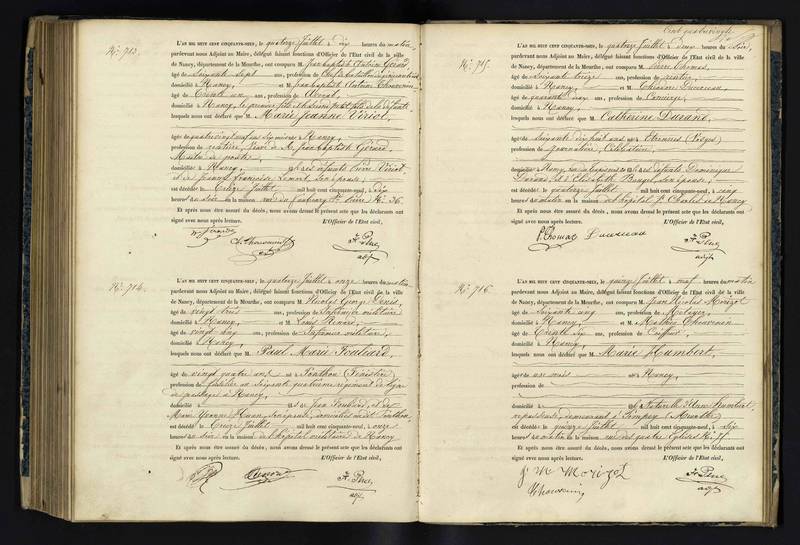 N° 713.
L'AN MIL HUIT CENT CINQUANTE-NEUF, le quatorze Juillet à dix heures du matin,
pardevant nous Adjoint au Maire, délégué faisant fonctions d'Officier de l'Etat civil de la ville
de Nancy, département de la Meurthe, ont comparu M. Jean baptiste Antoine Gérard,
âgé de Soixante Sept ans, profession de
domicilié à Nancy, et M. Jean baptiste Antoine
âgé de Trente un ans, profession de Avocat,
domicilié à Nancy, le premier fils le second petit fils de la défunte
lesquels nous ont déclaré que M. Marie Jeanne Viriot,
âgée de quatre vingt ans née à Nancy,
profession de rentière, Veuve de Jean baptiste Gérard,
domiciliée à Nancy,
et de Jeanne françoise son épouse,
est décédée le Treize Juillet mil huit cent cinquante-neuf, à dix
heures du soir en la maison rue du faubourg St. Pierre N° 36.
Et après nous être assuré du décès, nous avons dressé le présent acte que les déclarants ont
signé avec nous après lecture. L'Officier de l'Etat civil,
adjt
N° 714.
L'AN MIL HUIT CENT CINQUANTE-NEUF, le quatorze Juillet à onze heures du matin
pardevant nous Adjoint au Maire, délégué faisant fonctions d'Officier de l'Etat civil de la ville
de Nancy, département de la Meurthe, ont comparu M. Nicolas George Denis,
âgé de vingt trois ans, profession de Infirmier militaire
domicilié à Nancy, et M. Louis Renard,
âgé de vingt ans, profession de Infirmier militaire
domicilié à Nancy
lesquels nous ont déclaré que M. Paul Marie Fouliard,
âgé de vingt quatre ans né à Ponthou (Finistère)
profession de fusilier au Soixante quatrième régiment de ligne
de passage à Nancy,
domicilié à fils de Jean Fouliard, et de
Marie Yvonne son épouse, domiciliés
est décédé le Treize Juillet mil huit cent cinquante-neuf, à onze
heures du soir en la maison de l'hôpital militaire de Nancy
Et après nous être assuré du décès, nous avons dressé le présent acte que les déclarants ont
signé avec nous après lecture. L'Officier de l'Etat civil,
adjt
Cent quatrevingt
N° 715.
L'AN MIL HUIT CENT CINQUANTE-NEUF, le quatorze Juillet à deux heures du Soir,
pardevant nous Adjoint au Maire, délégué faisant fonctions d'Officier de l'Etat civil de la ville
de Nancy, département de la Meurthe, ont comparu M. Pierre Thomas,
âgé de Soixante treize ans, profession de rentier,
domicilié à Nancy, et M.
âgé de quarante ans, profession de Concierge,
domicilié à Nancy,
lesquels nous ont déclaré que M. Catherine Durand,
âgée de Soixante dix huit ans née à (Vosges)
profession de journalière, Célibataire,
domiciliée à Nancy, fille des défunts Dominique
Durand et d'Elisabeth son épouse,
est décédée le quatorze Juillet mil huit cent cinquante-neuf, à cinq
heures du matin en la maison de l'hôpital St. Charles de Nancy
Et après nous être assuré du décès, nous avons dressé le présent acte que les déclarants ont
signé avec nous après lecture. L'Officier de l'Etat civil,
P. Thomas
adjt
N° 716.
L'AN MIL HUIT CENT CINQUANTE-NEUF, le quinze Juillet à neuf heures du matin
pardevant nous Adjoint au Maire, délégué faisant fonctions d'Officier de l'Etat civil de la ville
de Nancy, département de la Meurthe, ont comparu M. Jean Nicolas Morizot
âgé de Soixante cinq ans, profession de
domicilié à Nancy, et M. Mathieu
âgé de Trente ans, profession de Coiffeur,
domicilié à Nancy,
lesquels nous ont déclaré que M. Marie Humbert,
âgée de un mois née à Nancy,
profession de
domiciliée à fille naturelle d'Anne Humbert,
demeurant à Pompey (Meurthe)
est décédée le quinze Juillet mil huit cent cinquante-neuf, à six
heures du matin en la maison rue des quatre Eglises
Et après nous être assuré du décès, nous avons dressé le présent acte que les déclarants ont
signé avec nous après lecture. L'Officier de l'Etat civil,
J N Morizot
adjt